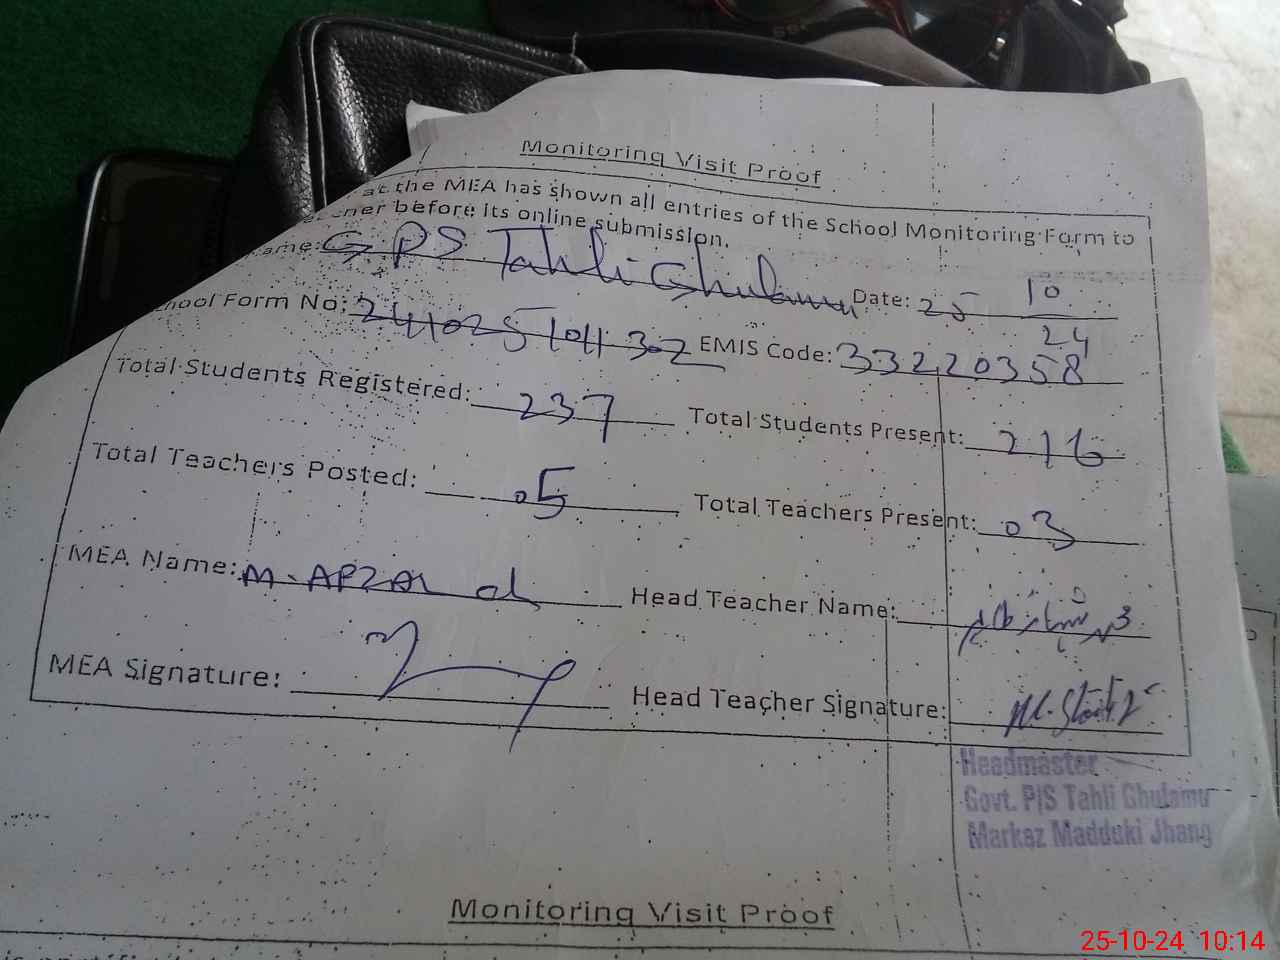 Monitoring Visit Proof
at the MEA has shown all entries of the School Monitoring Form to
before its online submission.
ame: GPS Tahli Ghulamu Date: 25 10/24
hool Form No: EMIS Code: 33220358
Total Students Registered: 237 Total Students Present: 216
Total Teachers Posted: 05 Total Teachers Present: 03
MEA Name: M. AFZAL Head Teacher Name:
MEA Signature: Head Teacher Signature:
Headmaster
Govt. P/S Tahli Ghulamu
Markaz Madduki Jhang
Monitoring Visit Proof
25-10-24 10:14